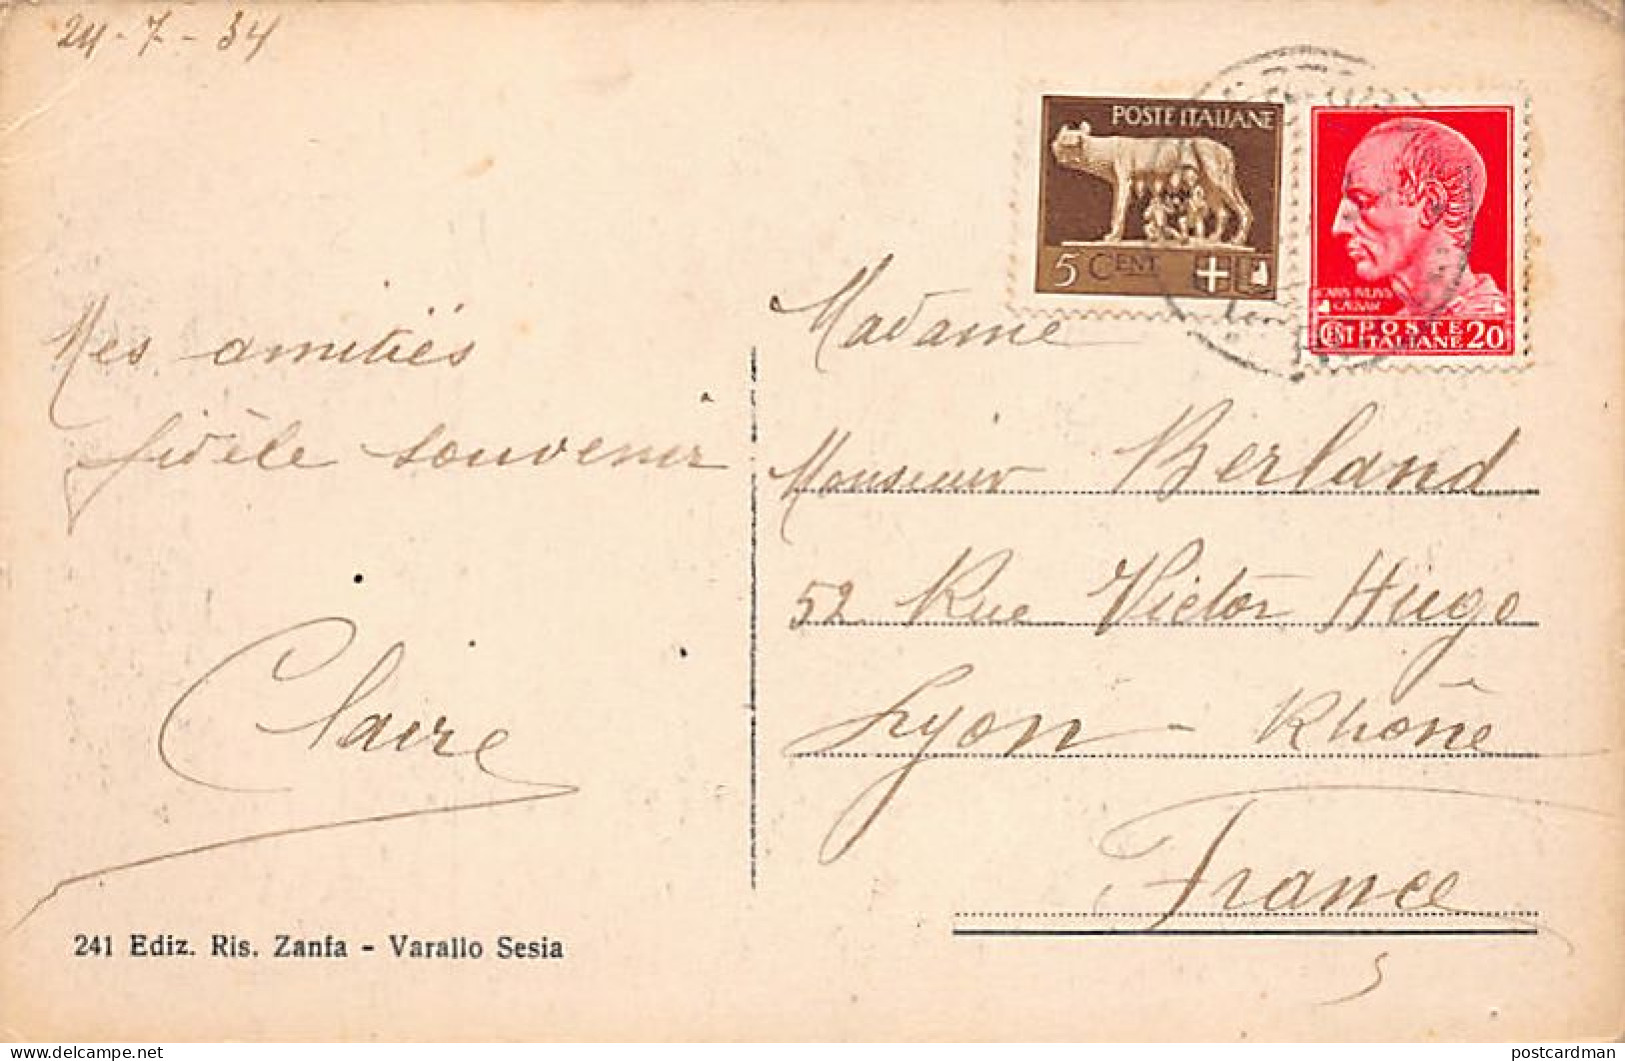 24-7-34
POSTE ITALIANE
5 CENT
CAIVS IVLIVS
CAESAR
CENT POSTE ITALIANE 20
Mes amitiés
fidèle souvenir
Claire
Madame
Monsieur Berland
52 Rue Victor Hugo
Lyon - Rhône
France
241 Ediz. Ris. Zanfa - Varallo Sesia
delcampe.net
postcardman